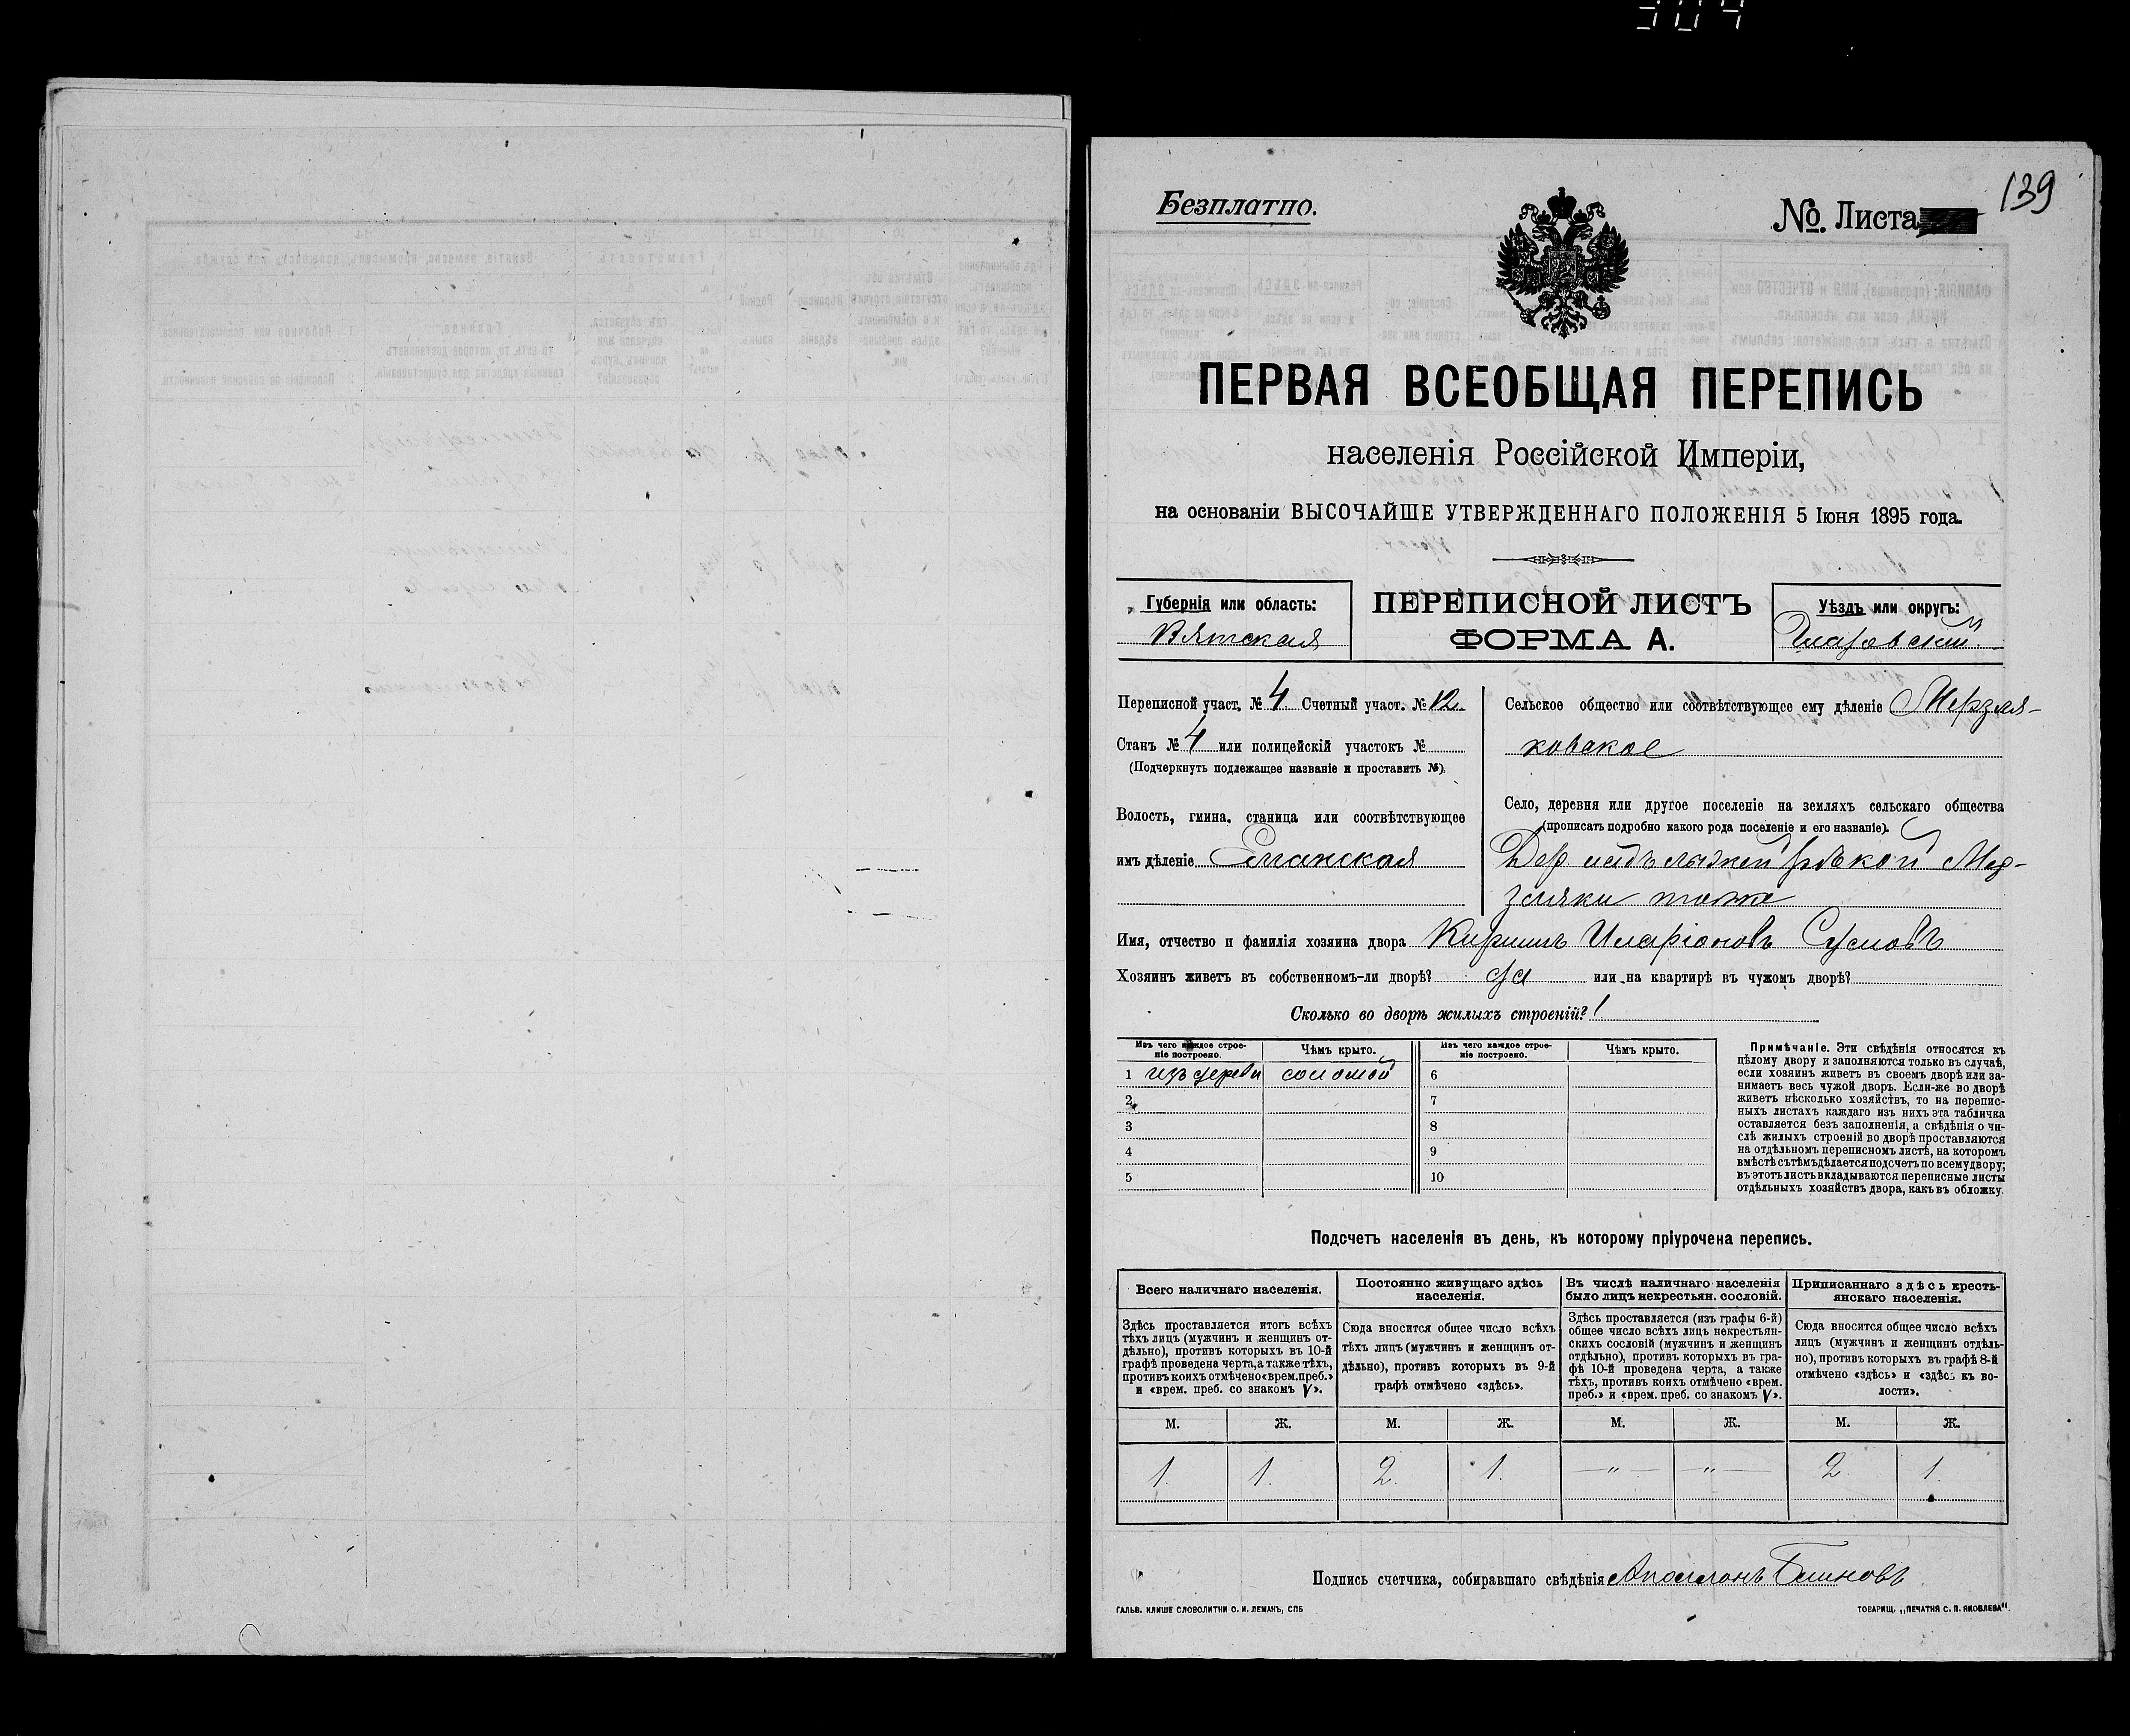 304
139
Безплатно.
№. Листа
ПЕРВАЯ ВСЕОБЩАЯ ПЕРЕПИСЬ
населенія Россійской Имперіи,
на основаніи ВЫСОЧАЙШЕ УТВЕРЖДЕННАГО ПОЛОЖЕНІЯ 5 Іюня 1895 года.
Губернія или область:
Вятская
ПЕРЕПИСНОЙ ЛИСТЪ
ФОРМА А.
Уѣздъ или округъ:
Глазовскій
Переписной участ. № 4 Счетный участ. № 12
Станъ № 4 или полицейскій участокъ №
(Подчеркнуть подлежащее названіе и проставить №).
Волость, гмина, станица или соотвѣтствующее
имъ дѣленіе Еланская
Сельское общество или соотвѣтствующее ему дѣленіе Мерзля-
ковское
Село, деревня или другое поселеніе на земляхъ сельскаго общества
(прописать подробно какого рода поселеніе и его названіе).
Дер. надъ рѣкой Мер-
зляки тожъ
Имя, отчество и фамилія хозяина двора Кириллъ Иларіоновъ Сусловъ
Хозяинъ живетъ въ собственномъ-ли дворѣ? да или на квартирѣ въ чужомъ дворѣ?
Сколько во дворѣ жилыхъ строеній? 1
Изъ чего каждое строе-
ніе построено.
Чѣмъ крыто.
Изъ чего каждое строе-
ніе построено.
Чѣмъ крыто.
1 изъ дерева соломой 6
2 7
3 8
4 9
5 10
Примѣчаніе. Эти свѣдѣнія относятся къ
цѣлому двору и заполняются только въ случаѣ,
если хозяинъ живетъ въ своемъ дворѣ или за-
нимаетъ весь чужой дворъ. Если-же во дворѣ
живетъ нѣсколько хозяйствъ, то на перепис-
ныхъ листахъ каждаго изъ нихъ эта табличка
оставляется безъ заполненія, а свѣдѣнія о чи-
слѣ жилыхъ строеній во дворѣ проставляются
на отдѣльномъ переписномъ листѣ, на которомъ
вмѣстѣ съ тѣмъ дѣлается подсчетъ по всему двору;
въ этотъ листъ вкладываются переписные листы
отдѣльныхъ хозяйствъ двора, какъ въ обложку.
Подсчетъ населенія въ день, къ которому пріурочена перепись.
Всего наличнаго населенія.
Здѣсь проставляется итогъ всѣхъ
тѣхъ лицъ (мужчинъ и женщинъ от-
дѣльно), противъ которыхъ въ 10-й
графѣ проведена черта, а также тѣхъ,
противъ коихъ отмѣчено «врем. преб.»
и «врем. преб. со знакомъ V».
Постоянно живущаго здѣсь
населенія.
Сюда вносится общее число всѣхъ
тѣхъ лицъ (мужчинъ и женщинъ от-
дѣльно), противъ которыхъ въ 9-й
графѣ отмѣчено «здѣсь».
Въ числѣ наличнаго населенія
было лицъ некрестьян. сословій.
Здѣсь проставляется (изъ графы 6-й)
общее число всѣхъ лицъ некрестьян-
скихъ сословій (мужчинъ и женщинъ
отдѣльно), противъ которыхъ въ гра-
фѣ 10-й проведена черта, а также
тѣхъ, противъ коихъ отмѣчено «врем.
преб.» и «врем. преб. со знакомъ V».
Приписаннаго здѣсь кресть-
янскаго населенія.
Сюда вносится общее число всѣхъ
лицъ (мужчинъ и женщинъ отдѣль-
но), противъ которыхъ въ графѣ 8-й
отмѣчено «здѣсь» и «здѣсь къ во-
лости».
М. Ж. М. Ж. М. Ж. М. Ж.
1. 1. 2. 1. — „ — — „ — 2. 1.
Подпись счетчика, собиравшаго свѣдѣнія Аполлонъ Блиновъ
ГАЛЬВ. КЛИШЕ СЛОВОЛИТНИ О. И. ЛЕМАНЪ, СПБ
ТОВАРИЩ. „ПЕЧАТНЯ С. П. ЯКОВЛЕВА“.